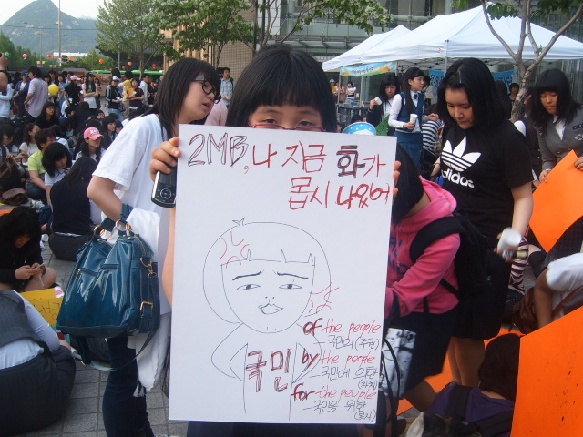 2MB, 나 지금 화가
몹시 나있어
국민
of the people
국민의 (주권)
by the people
국민에 의한
for the people
국민을 위한
adidas